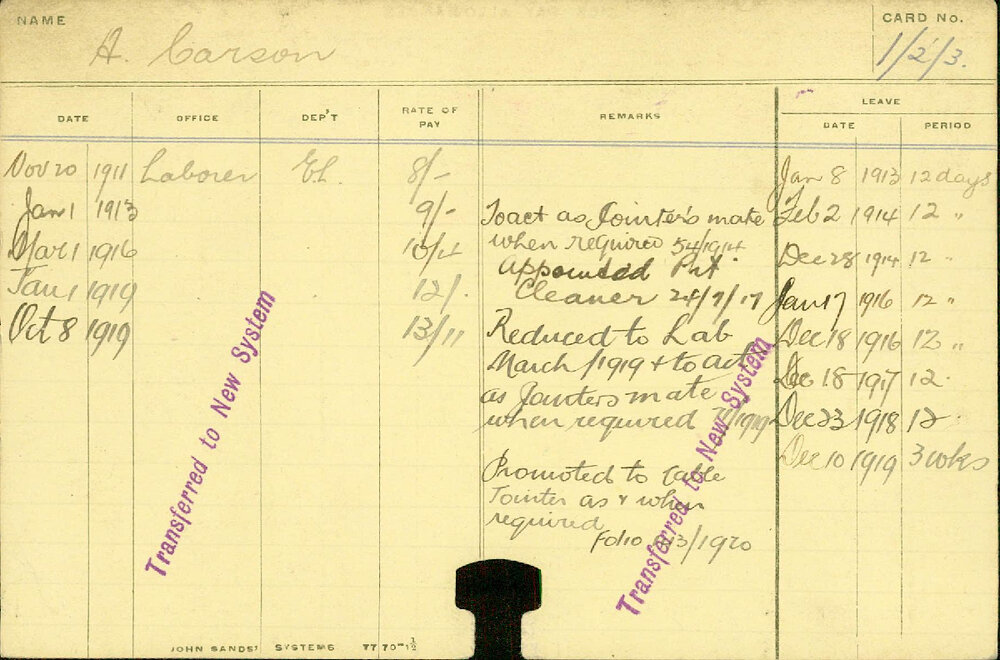 NAME
A. Carson
CARD No.
1/2/3.
DATE OFFICE DEP'T RATE OF PAY REMARKS LEAVE
DATE PERIOD
Nov 20 1911 Laborer El. 8/-
Jan 1 1913 9/-
Mar 1 1916 10/4
Jan 1 1919 12/-
Oct 8 1919 13/11
To act as Jointer's mate
when required 54/1914
Appointed Pit
Cleaner 24/7/17
Reduced to Lab
March /1919 + to act
as Jointers mate
when required /1919
Promoted to Cable
Jointer as & when
required
Folio /1920
Jan 8 1913 12 days
Feb 2 1914 12 "
Dec 28 1914 12 "
Jan 17 1916 12 "
Dec 18 1916 12 "
Dec 18 1917 12 "
Dec 23 1918 12
Dec 10 1919 3 wks
Transferred to New System
Transferred to New System
JOHN SANDS' SYSTEMS 77 70-1½